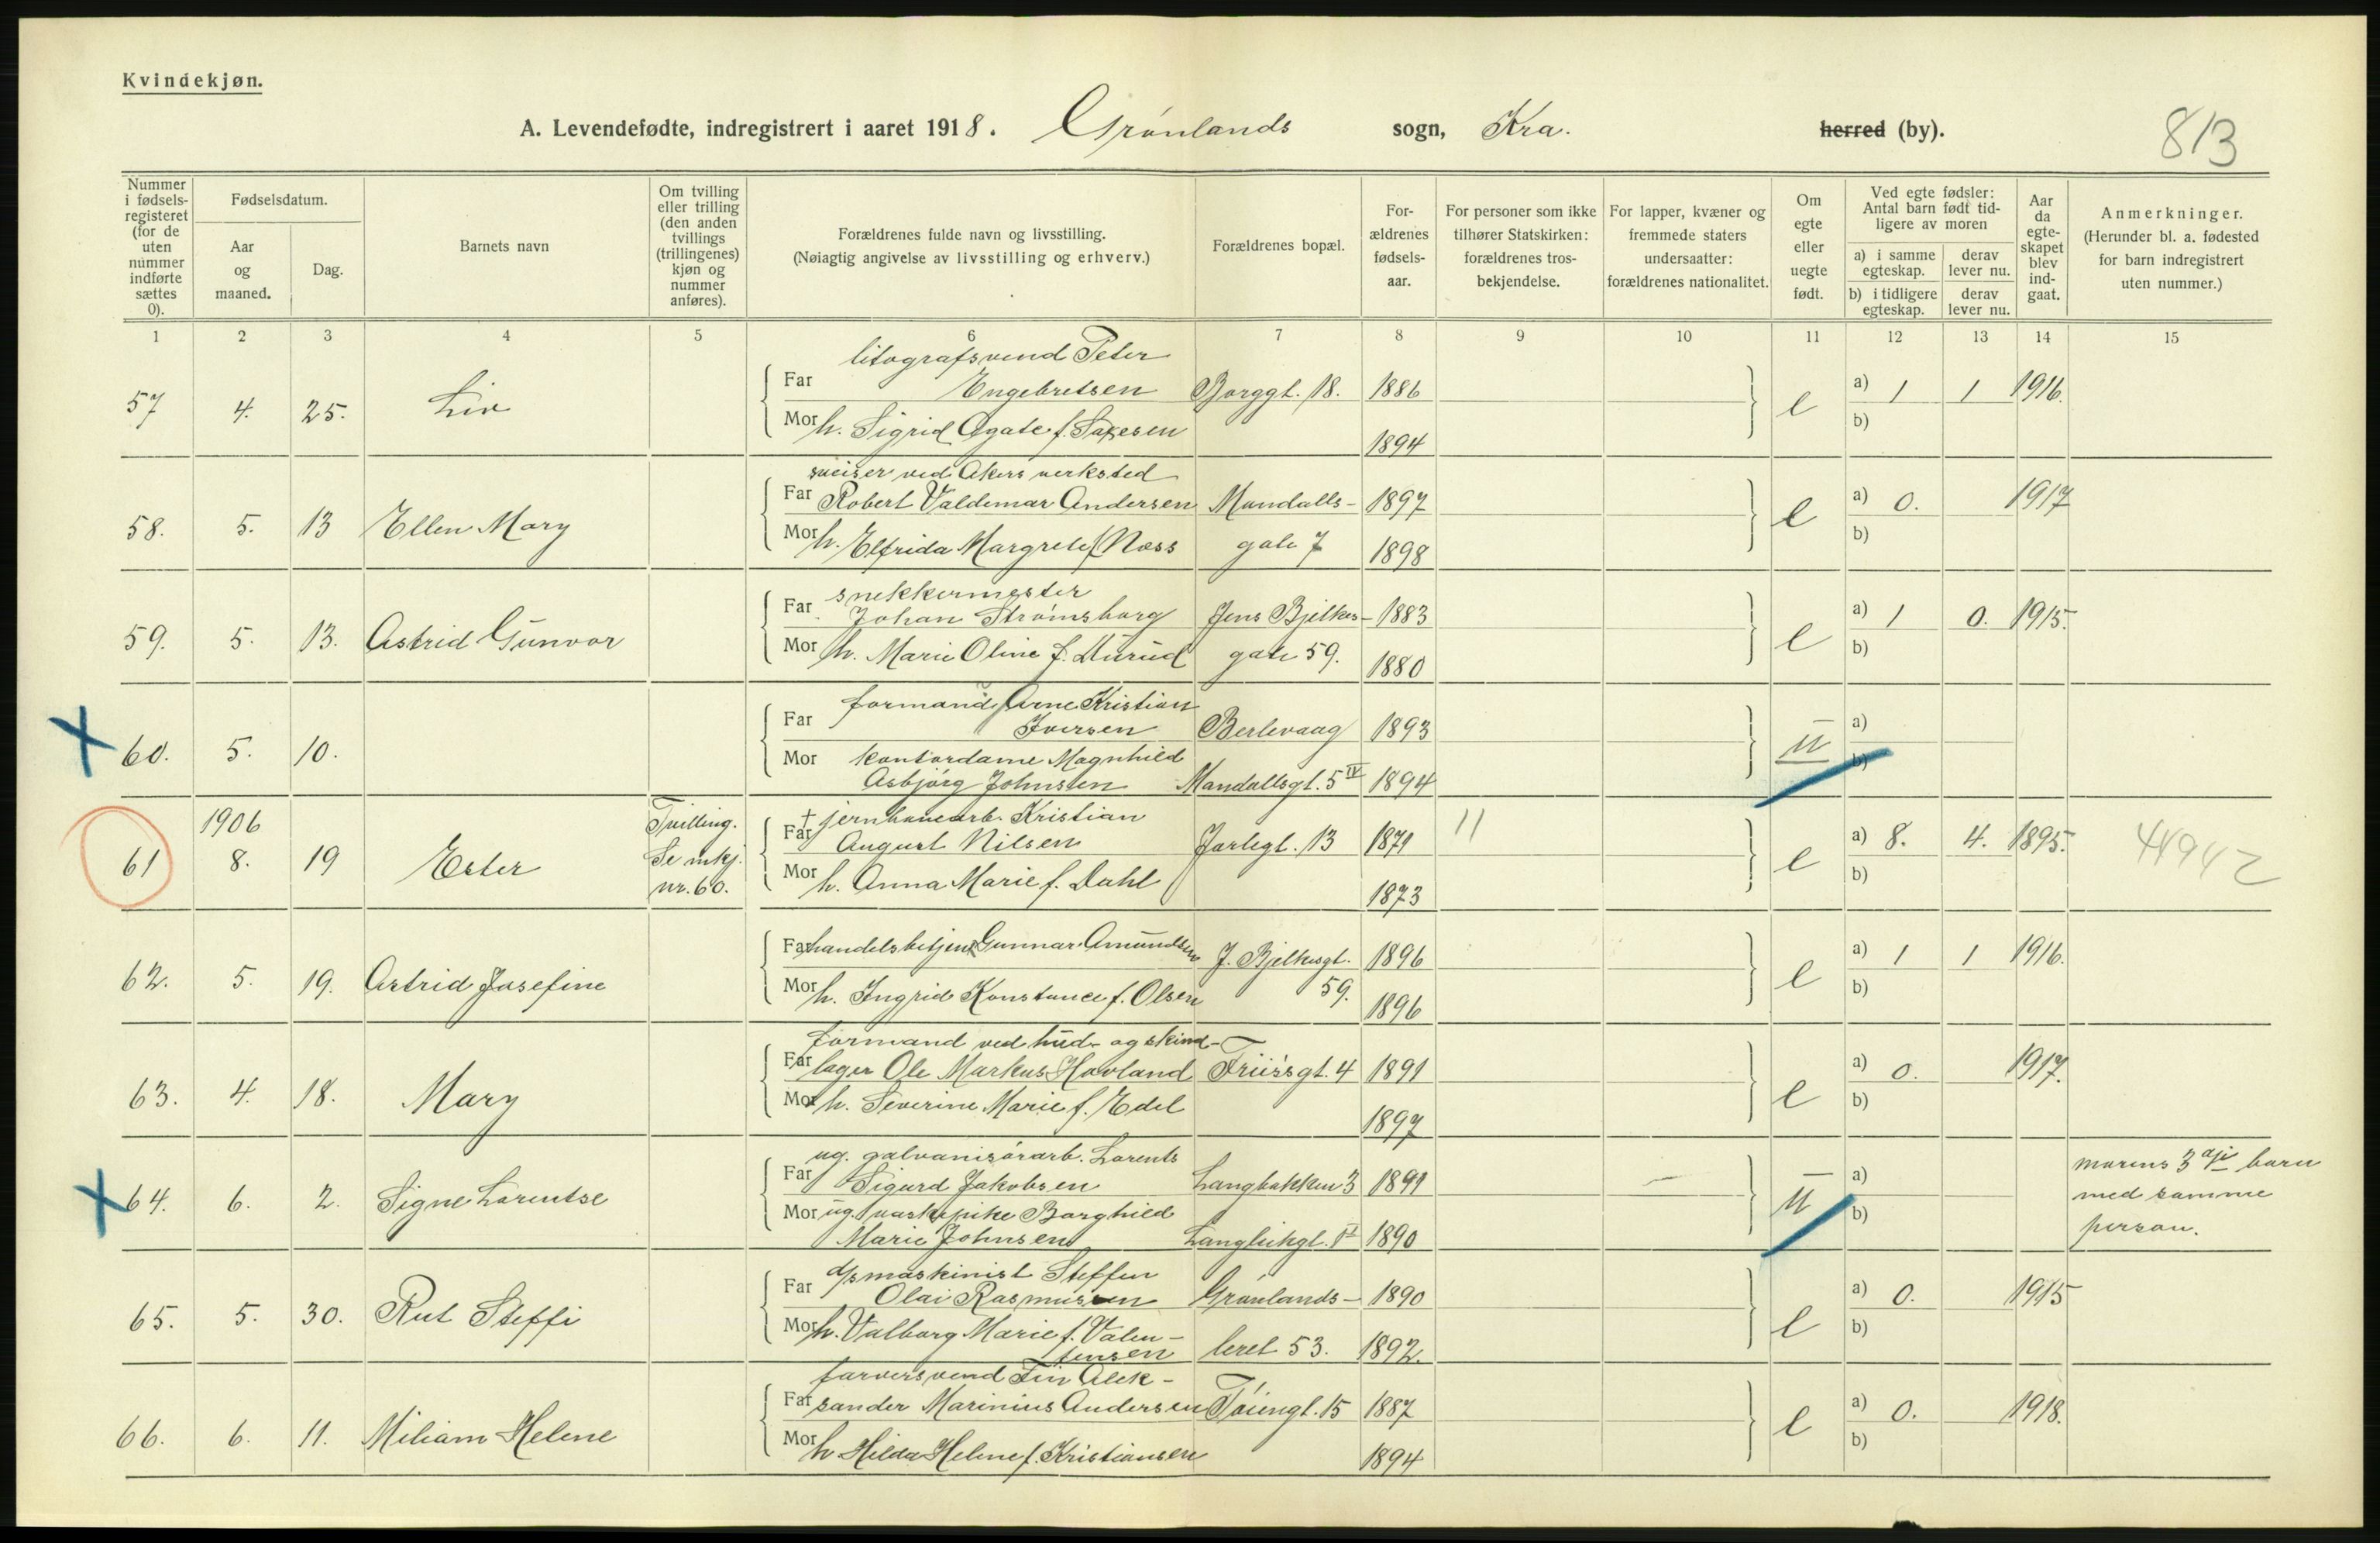 Kvindekjøn.
A. Levendefødte, indregistrert i aaret 1918. Grønlands sogn, Kra. herred (by).
813
Nummer i fødselsregisteret (for de uten nummer indførte sættes 0).
Fødselsdatum.
Aar og maaned.
Dag.
Barnets navn
Om tvilling eller trilling (den anden tvillings (trillingenes) kjøn og nummer anføres).
Forældrenes fulde navn og livsstilling.
(Nøiagtig angivelse av livsstilling og erhverv.)
Forældrenes bopæl.
Forældrenes fødselsaar.
For personer som ikke tilhører Statskirken: forældrenes trosbekjendelse.
For lapper, kvæner og fremmede staters undersaatter: forældrenes nationalitet.
Om egte eller uegte født.
Ved egte fødsler: Antal barn født tidligere av moren
a) i samme egteskap.
derav lever nu.
b) i tidligere egteskap.
derav lever nu.
Aar da egteskapet blev indgaat.
Anmerkninger.
(Herunder bl. a. fødested for barn indregistrert uten nummer.)
1 2 3 4 5 6 7 8 9 10 11 12 13 14 15
litografsvend Peter
57 4. 25. Liv Far Engebretsen Borggt. 18. 1886 e a) 1 1 1916.
Mor h. Sigrid Agate f. 1894 b)
sveiser ved Akers verksted
58. 5. 13 Ellen Mary Far Robert Valdemar Andersen Mandalls- 1897 e a) 0. 1917
Mor h. Elfrida Margrete f. Næss gate 7 1898 b)
snekkermester
59. 5. 13. Astrid Gunvor Far Johan Strømsborg Jens Bjelkes- 1883 e a) 1 0. 1915.
Mor h. Marie Oline f. gate 59. 1880 b)
formand Arne Kristian
60. 5. 10. Far Iversen Berlevaag 1893 u a)
Mor kontordame Magnhild b)
Asbjørg Johnsen Mandallsgt. 5 IV 1894
1906 Tvilling. † Kristian
61 8. 19 Ester Se mkj. Far August Nilsen Jarlegt. 13 1871 11 e a) 8. 4. 1895. 44942
nr. 60. Mor h. Anna Marie f. Dahl 1873 b)
62. 5. 19. Astrid Josefine Far handelsbetjent Gunnar Amundsen J. Bjelkesgt. 1896 e a) 1 1 1916.
Mor h. Ingrid Konstance f. Olsen 59. 1896 b)
formand ved hud- og skind-
63. 4. 18. Mary Far lager Ole Markus Hovland Friissgt. 4 1891 e a) 0. 1917.
Mor h. Severine Marie f. Edel 1897 b)
ug. galvanisørarb. Lorents morens 3die barn
64. 6. 2. Signe Lorentse Far Sigurd Jakobsen Langbakken 3 1891 u a) med samme
Mor ug. Borghild b) person.
Marie Johnsen 1890
d/s maskinist Steffen
65. 5. 30. Rut Steffi Far Olai Rasmussen Grønlands- 1890 e a) 0. 1915
Mor h. Valborg Marie f. Valen- leret 53. 1892. b)
tensen
farversvend Fin Alek-
66. 6. 11. Miliam Helene Far sander Marinius Andersen Tøiengt. 15 1887 e a) 0. 1918.
Mor h. Hilda Helene f. Kristiansen 1894 b)